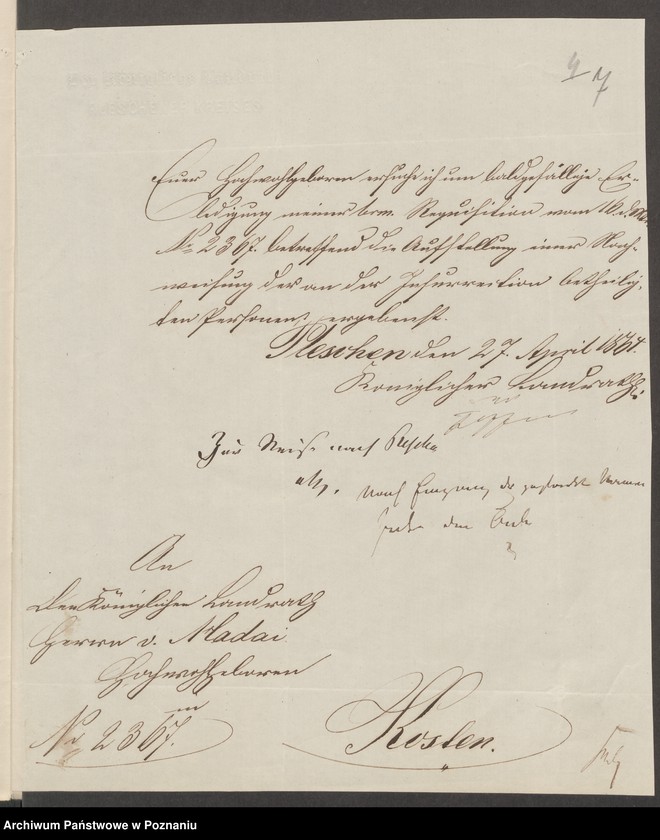 4 7
Euer Hochwohlgeboren ersuche ich um baldgefällige Er-
ledigung meiner Requisition vom 16. d. Mts.
No 2367. betreffend die Aufstellung einer Nach-
weisung der an der Insurrection betheilig-
ten Personen, ergebenst.
Pleschen den 27. April 1864.
Königlicher Landrath.
Zur Reise nach
Nach Eingang der
An
den Königlichen Landrath
Herrn v. Madai
Hochwohlgeboren
No 2367.
Kosten.
Archiwum Państwowe w Poznaniu